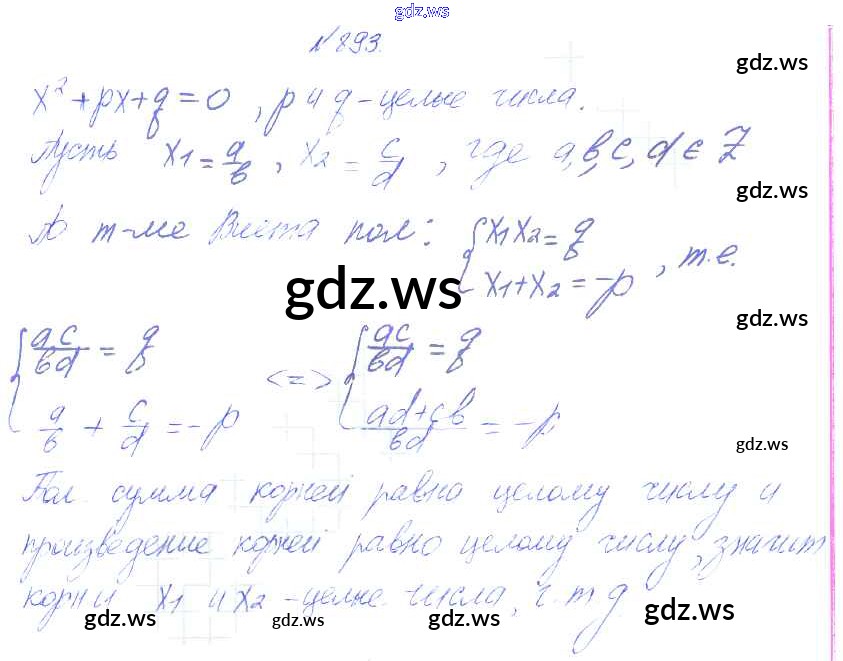 gdz.ws
№893.
gdz.ws
x²+px+q=0, p и q - целые числа.
Пусть x₁=a/в, x₂=c/d, где a,в,c,d∈Z
gdz.ws
По т-ме Виета пол: {x₁x₂=q
x₁+x₂=-p, т.е.
gdz.ws
gdz.ws
{ac/вd=q <=> {ac/вd=q
a/в+c/d=-p {ad+cв/вd=-p;
gdz.ws
Пол. сумма корней равна целому числу и
произведение корней равно целому числу, значит
корни x₁ и x₂ - целые числа, ч.т.д.
gdz.ws gdz.ws gdz.ws gdz.ws